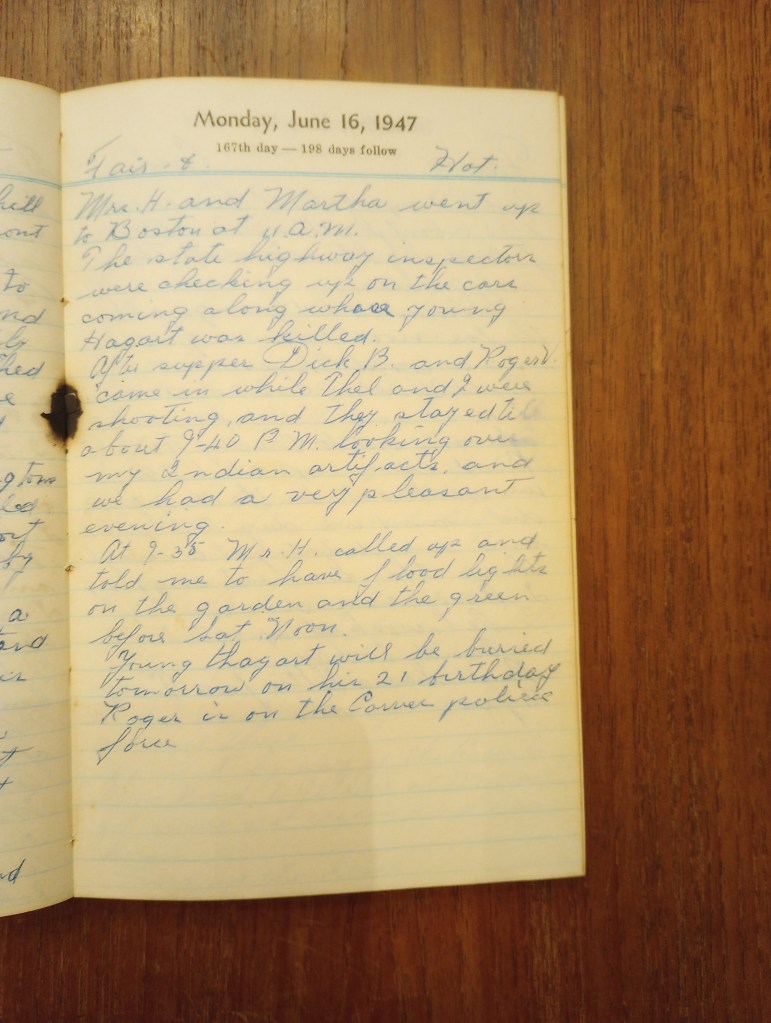 Monday, June 16, 1947
167th day — 198 days follow
Fair & Hot.
Mrs. H. and Martha went up
to Boston at 11 A.M.
The state highway inspectors
were checking up on the cars
coming along where young
Hagart was killed.
After supper Dick B. and Roger V.
came in while Thel and I were
shooting, and they stayed til
about 9-40 P.M. looking over
my Indian artifacts, and
we had a very pleasant
evening.
At 9-35 Mr. H. called up and
told me to have flood lights
on the garden and the green
before Sat. Noon.
Young Hagart will be buried
tomorrow on his 21 birthday
Roger is on the Carver police
force
hill
ont
to
nd
ly
hed
e
led
out
by
a
and